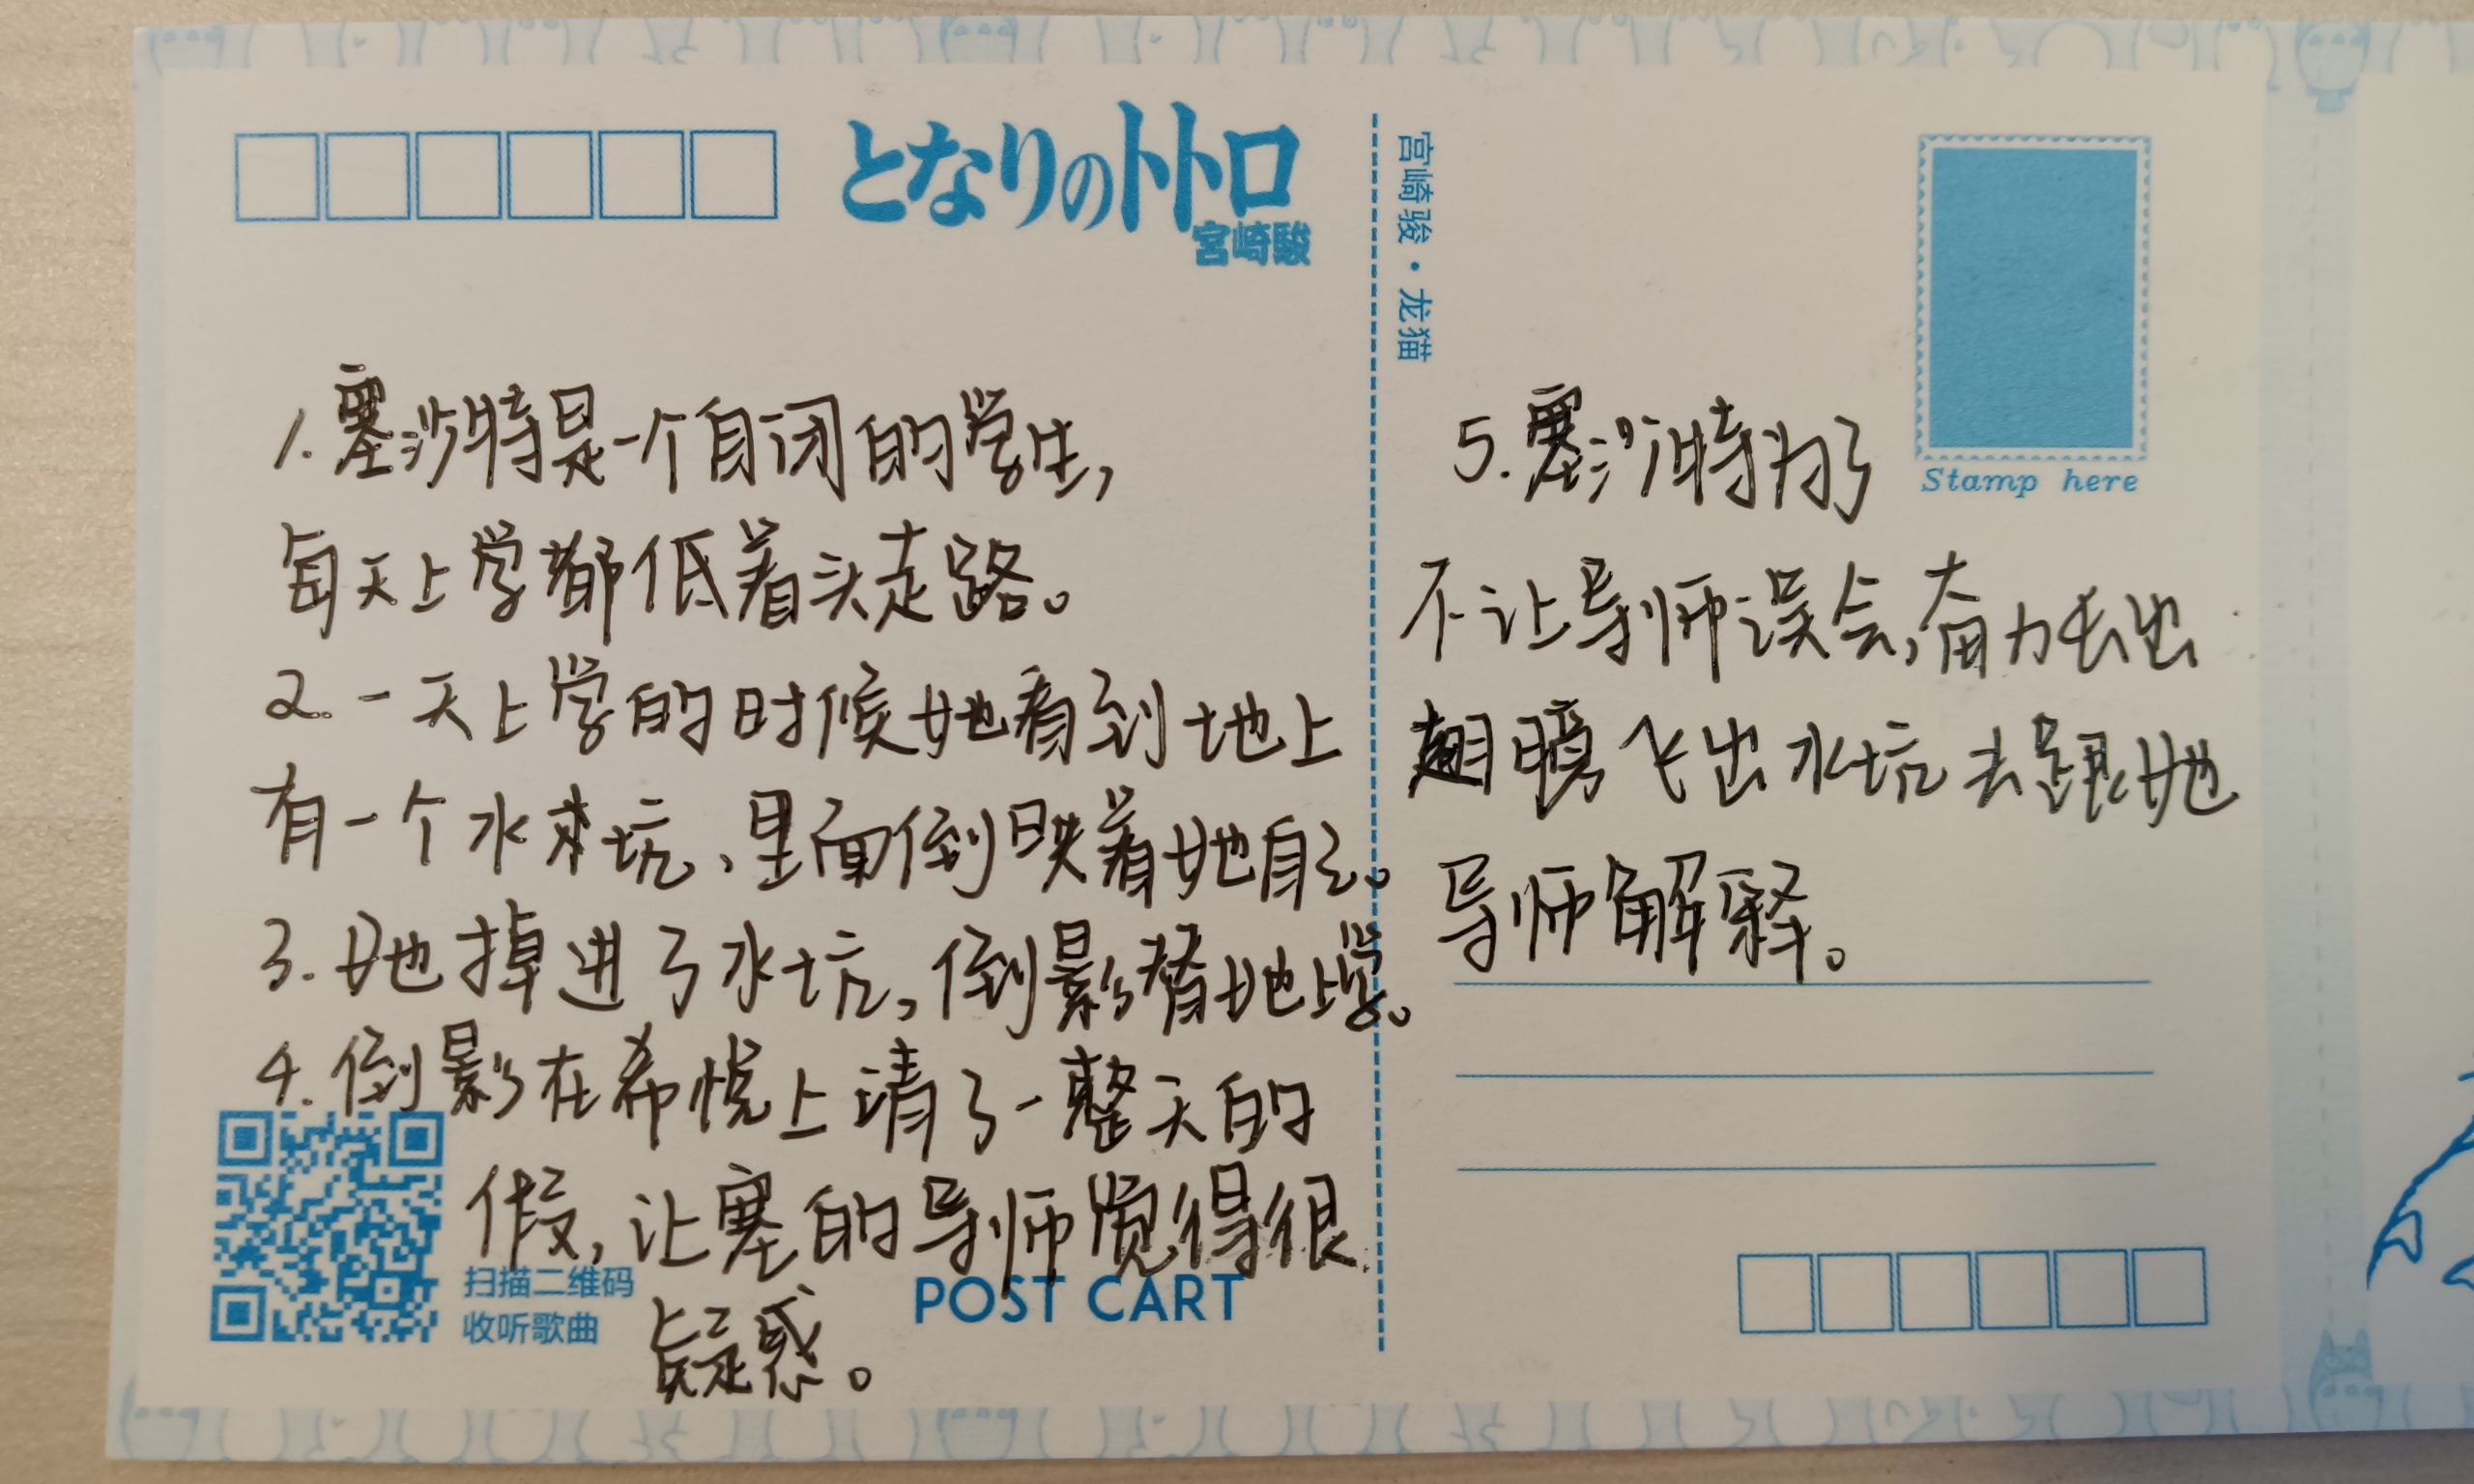 となりのトトロ
宮崎駿
1.塞沙特是一个自闭的学生,
每天上学都低着头走路。
2.一天上学的时候她看到地上
有一个水来坑,里面倒映着她自己。
3.她掉进了水坑,倒影替她上学。
4.倒影在希悦上请了一整天的
假,让塞的导师觉得很
疑惑。
扫描二维码
收听歌曲
POST CART
宫崎骏·龙猫
Stamp here
5.塞沙特为了
不让导师误会,奋力长出
翅膀飞出水坑去跟她
导师解释。